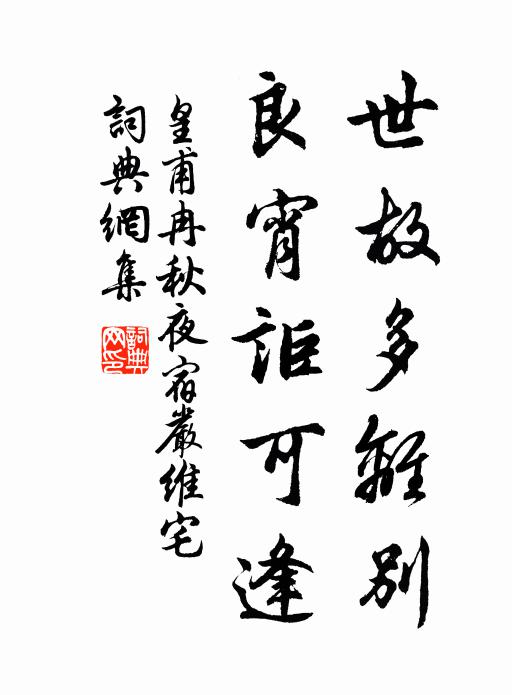 世故多離別
良宵詎可逢
皇甫冉秋夜宿嚴維宅
詞典網集
詞典网印